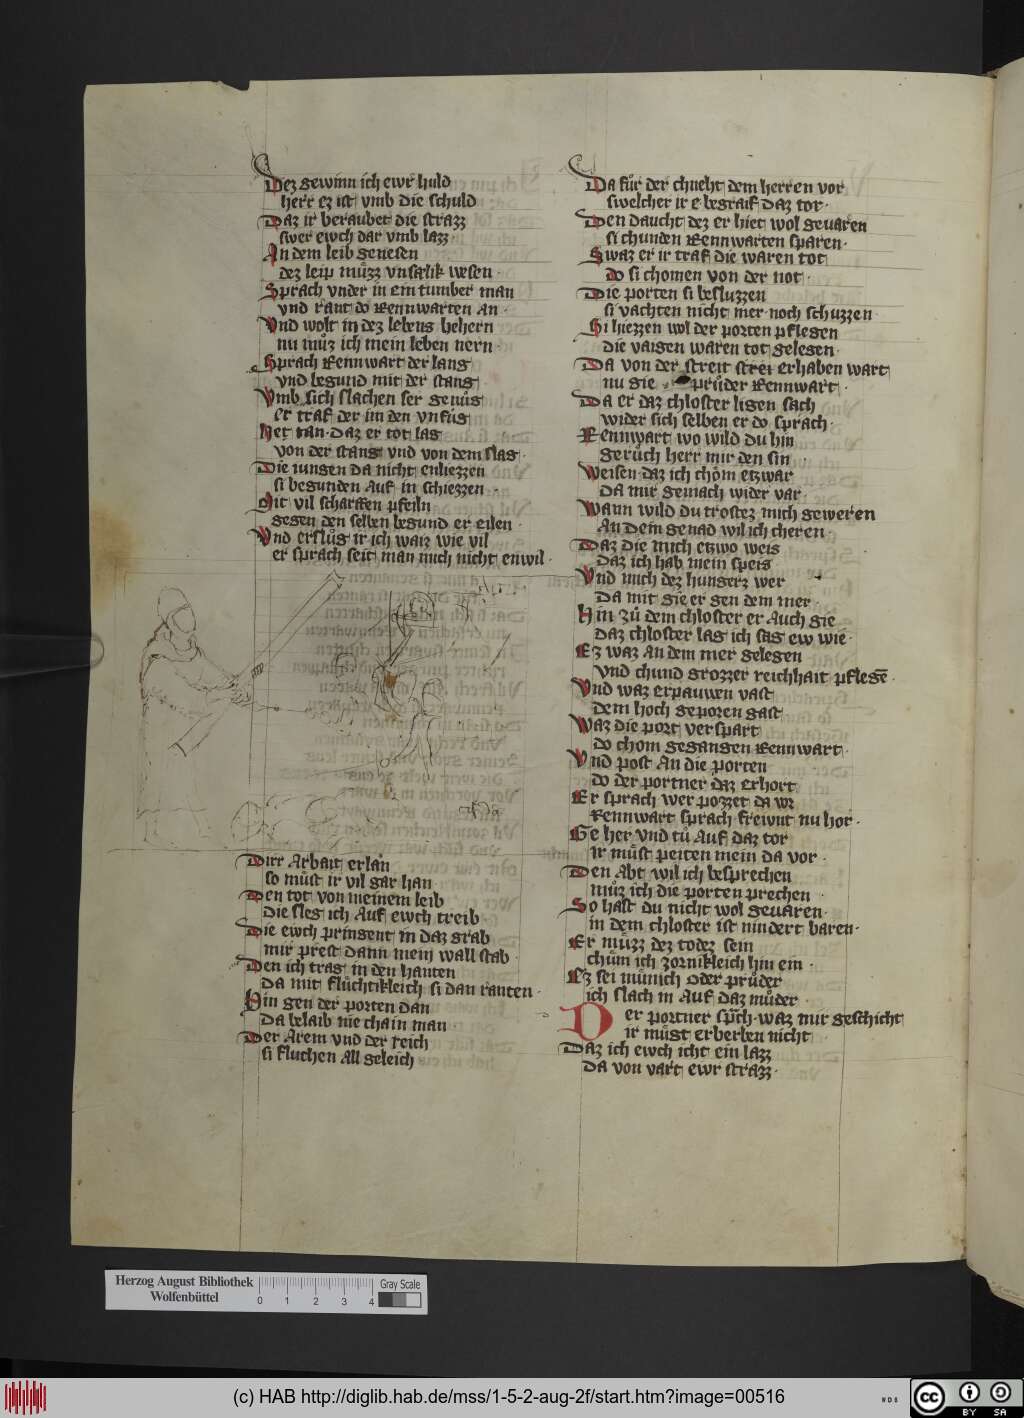 Dez gewinn ich ewr huld
herr ez ist vmb die schuld
Daz ir beraubet die strazz
swer ewch dar vmb lazz
An dem leib genesen
dez leip můzz vnsælik wesen
Sprach vnder in ein tumber man
vnd rant do Rennwarten an
Vnd wolt in dez lebens behern
nu můz ich mein leben nern
Sprach Rennwart der lang
vnd begund mit der stang
Vmb sich slachen ser genůg
er traf der im den vnfůg
Het tan daz er tot lag
von der stang vnd von dem slag
Die iungen da nicht enliezzen
si begunden auf in schiezzen
Mit vil scharffen pfeiln
gegen den selben begund er eilen
Vnd erslůg ir ich waiz wie vil
er sprach seit man mich nicht enwil
Dirr arbait erlan
so můst ir vil gar han
Den tot von meinem leib
die sleg ich auf ewch treib
Die ewch pringent in daz grab
mir prest dann mein wall stab
Den ich trag in den hanten
da mit flůchtikleich si dan ranten
Hin gen der porten dan
da belaib nie chain man
Der arem vnd der reich
si fluchen all geleich
Da fůr der chneht dem herren vor
swelcher ir e begraif daz tor
Den daucht dez er hiet wol gevaren
si chunden Rennwarten sparen
Swaz er ir traf die waren tot
do si chomen von der not
Die porten si besluzzen
si vachten nicht mer noch schuzzen
Si hiezzen wol der porten pflegen
die vaigen waren tot gelegen
Da von der streit strei erhaben wart
nu gie průder Rennwart
Da er daz chloster ligen sach
wider sich selben er do sprach
Rennwart wo wild du hin
gerůch herr mir den sin
Weisen daz ich chöm etzwar
da mir gemach wider var
Wann wild du trostez mich geweren
An dem genad wil ich cheren
Daz die mich etzwo weis
daz ich hab mein speis
Vnd mich dez hungerz wer
da mit gie er gen dem mer
Hin zů dem chloster er auch gie
daz chloster lag ich sag ew wie
Ez waz an dem mer gelegen
vnd chund grozzer reichhait pflegē
Vnd waz erpauwen vast
dem hoch geporen gast
Waz die port verspart
do chom gegangen Rennwart
Vnd post an die porten
do der portner daz erhort
Er sprach wer pozzet da vor
Rennwart sprach freiwnt nu hör
Ge her vnd tů auf daz tor
ir můst peiten mein da vor
Den abt wil ich besprechen
můz ich die porten prechen
So hast du nicht wol gevaren
in dem chloster ist nindert baren
Er můzz dez todez sein
chům ich zornikleich hin ein
Ez sei můnich oder průder
ich slach in auf daz můder
Der portner sp̄ch waz mir geschicht
ir můgt erberben nicht
Daz ich ewch icht ein lazz
da von vart ewr strazz
Herzog August Bibliothek
Wolfenbüttel
0 1 2 3 4
Gray Scale
(c) HAB http://diglib.hab.de/mss/1-5-2-aug-2f/start.htm?image=00516
cc BY SA